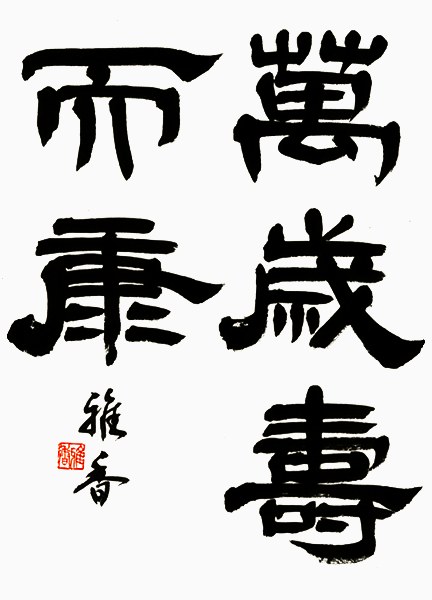 萬歲壽
而康
雅香